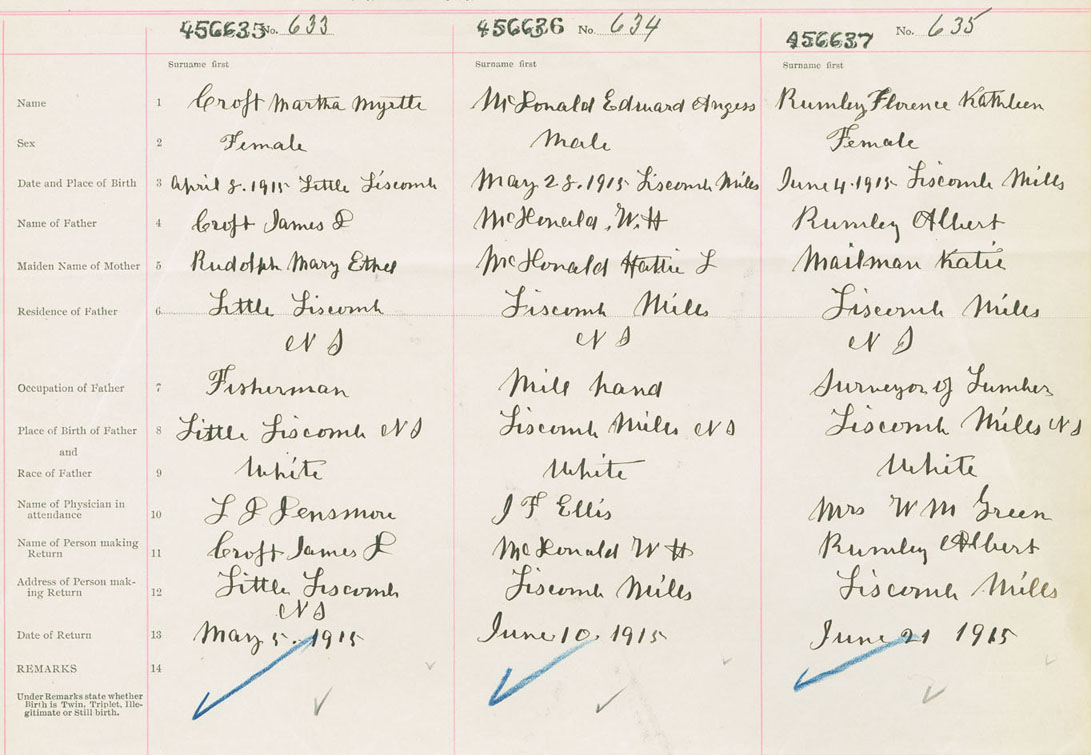 456635 No. 633 456636 No. 634 456637 No. 635
Surname first Surname first Surname first
Name 1 Croft Martha Myrtle McDonald Edward Angess Rumley Florence Kathleen
Sex 2 Female Male Female
Date and Place of Birth 3 April 8. 1915 Little Liscomb May 28. 1915 Liscomb Mills June 4. 1915 Liscomb Mills
Name of Father 4 Croft James McDonald, W. H Rumley Albert
Maiden Name of Mother 5 Rudolph Mary Ethel McDonald Hattie L Mailman Katie
Residence of Father 6 Little Liscomb Liscomb Mills Liscomb Mills
N S N S N S
Occupation of Father 7 Fisherman Mill hand Surveyor of Lumber
Place of Birth of Father 8 Little Liscomb N S Liscomb Mills N S Liscomb Mills N S
and
Race of Father 9 White White White
Name of Physician in
attendance 10 Densmore J F Ellis Mrs W M Green
Name of Person making
Return 11 Croft James McDonald W H Rumley Albert
Address of Person mak-
ing Return 12 Little Liscomb Liscomb Mills Liscomb Mills
N S
Date of Return 13 May 5. 1915 June 10. 1915 June 21 1915
REMARKS 14
Under Remarks state whether
Birth is Twin, Triplet, Ille-
gitimate or Still birth.